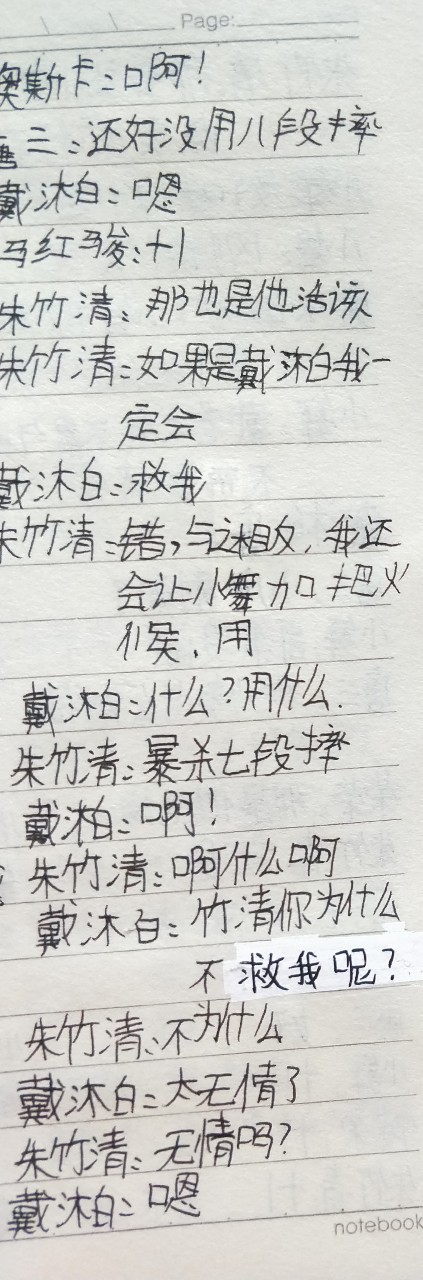 Page:
奥斯卡:啊!
唐三:还好没用八段摔
戴沐白:嗯
马红骏:+1
朱竹清:那也是他活该
朱竹清:如果是戴沐白我一
定会
戴沐白:救我
朱竹清:错,与之相反,我还
会让小舞加把火
候,用
戴沐白:什么?用什么.
朱竹清:暴杀七段摔
戴沐白:啊!
朱竹清:啊什么啊
戴沐白:竹清你为什么
不救我呢?
朱竹清:不为什么
戴沐白:太无情了
朱竹清:无情吗?
戴沐白:嗯
notebook